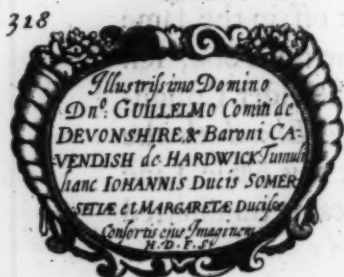 318
Illustrissimo Domino
Dno: GUILLELMO Comiti de
DEVONSHIRE & Baroni CA-
VENDISH de HARDWICK Tumuli
hanc IOHANNIS Ducis SOMER-
SETIÆ et MARGARETÆ Ducissæ
Consortis ejus Imaginem
H. D. F. S.